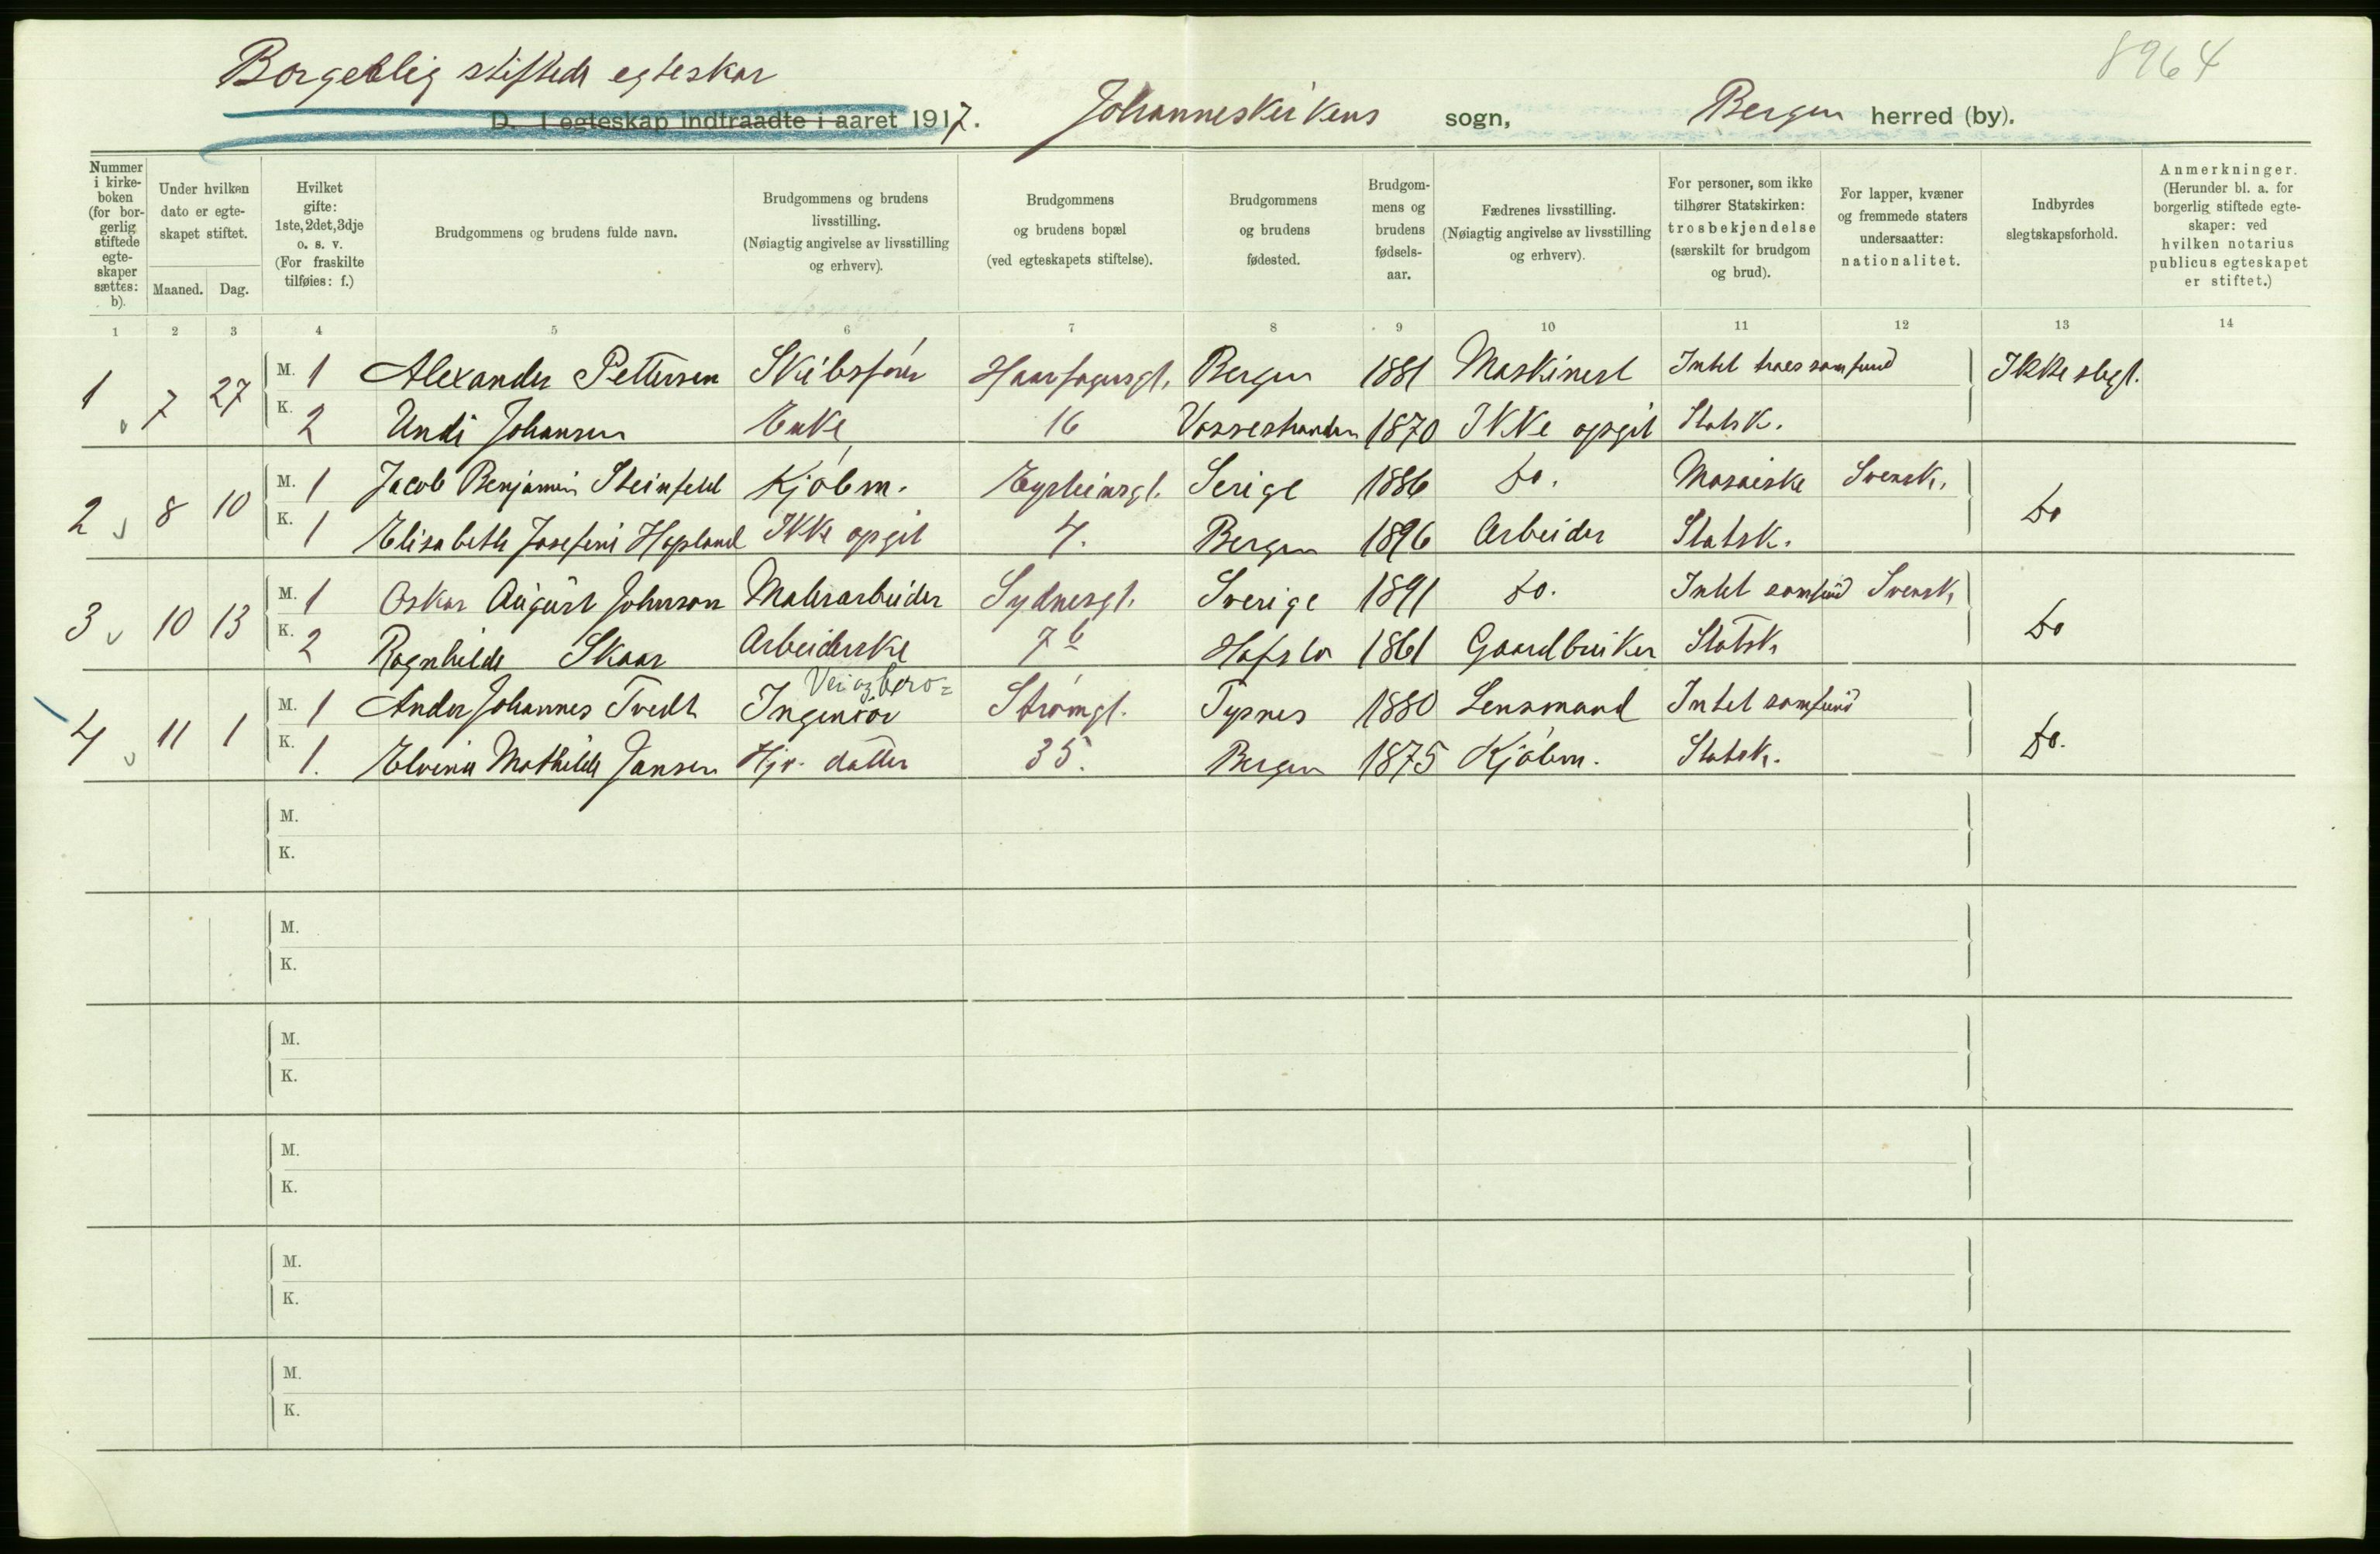 8964
Borgerlig stiftede egteskar
D. I egteskap indtraadte i aaret 1917. Johanneskirkens sogn, Bergen herred (by).
Nummer i kirke-boken (for bor-gerlig stiftede egte-skaper sættes: b).
Under hvilken dato er egte-skapet stiftet.
Maaned. Dag.
Hvilket gifte: 1ste, 2det, 3dje o. s. v. (For fraskilte tilføies: f.)
Brudgommens og brudens fulde navn.
Brudgommens og brudens livsstilling. (Nøiagtig angivelse av livsstilling og erhverv).
Brudgommens og brudens bopæl (ved egteskapets stiftelse).
Brudgommens og brudens fødested.
Brudgom-mens og brudens fødsels-aar.
Fædrenes livsstilling. (Nøiagtig angivelse av livsstilling og erhverv).
For personer, som ikke tilhører Statskirken: trosbekjendelse (særskilt for brudgom og brud).
For lapper, kvæner og fremmede staters undersaatter: nationalitet.
Indbyrdes slegtskapsforhold.
Anmerkninger. (Herunder bl. a. for borgerlig stiftede egte-skaper: ved hvilken notarius publicus egteskapet er stiftet.)
1 2 3 4 5 6 7 8 9 10 11 12 13 14
1 7 27 M. 1 Alexander Pettersen Skibsfører Haarfagersgt. Bergen 1881 Maskinest Intet troessamfund Ikke slegt.
K. 2 Undi Johansen Enke 16 Vossestranden 1870 Ikke opgit Statsk.
2 8 10 M. 1 Jacob Benjamin Steinfeld Kjøbm. Eysteinsgt. Serige 1886 do. Mosaiske Svensk. do
K. 1 Elisabeth Josefine Hopland Ikke opgit 4. Bergen 1896 Arbeider Statsk.
3 10 13 M. 1 Oskar August Johnson Malerarbeider Sydnesgt. Sverige 1891 do. Intet samfund Svensk. do
K. 2 Ragnhilde Skaar Arbeiderske 7b Hafslo 1861 Gaardbruker Statsk.
Vei og bero=
4 11 1 M. 1 Ander Johannes Tvedt Ingeniør Strømgt. Tysnes 1880 Lensmand Intet samfund do.
K. 1. Elvina Mathilde Jansen Hjv. datter 35. Bergen 1875 Kjøbm. Statsk.
M.
K.
M.
K.
M.
K.
M.
K.
M.
K.
M.
K.